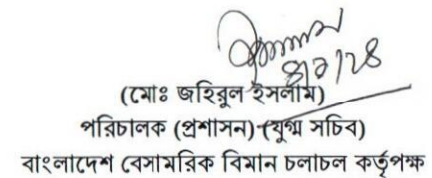 ৪/২/২৪
(মোঃ জহিরুল ইসলাম)
পরিচালক (প্রশাসন) (যুগ্ম সচিব)
বাংলাদেশ বেসামরিক বিমান চলাচল কর্তৃপক্ষ